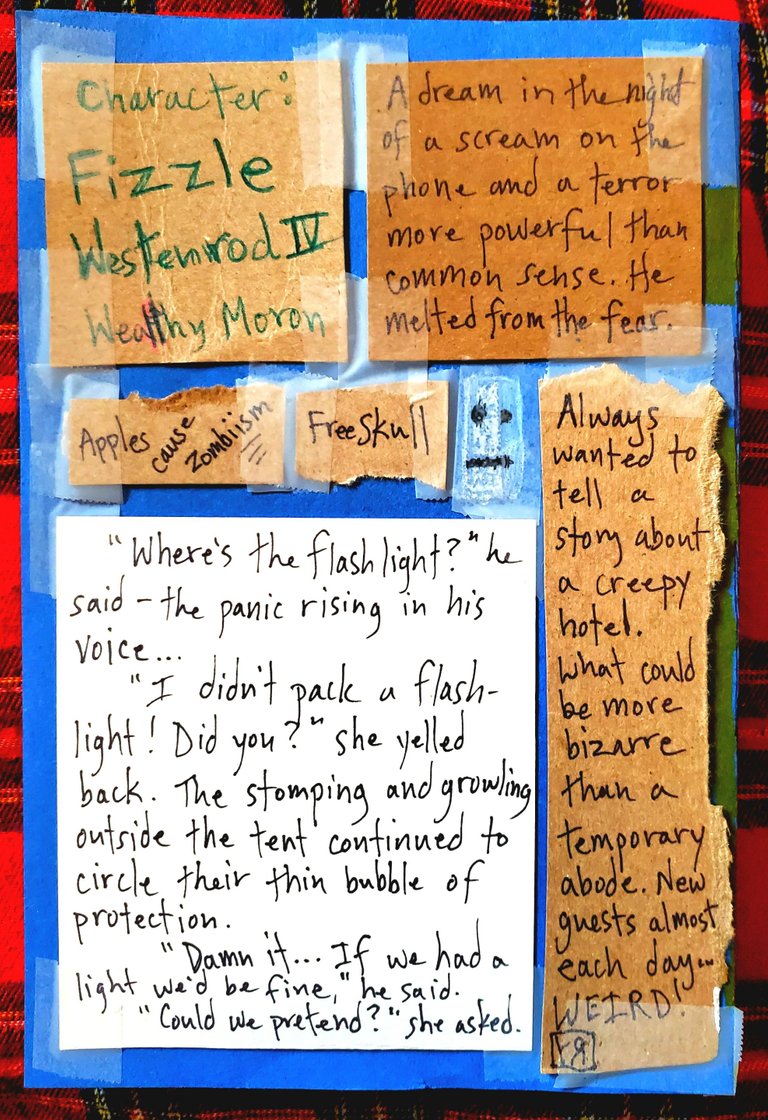 Character:
Fizzle
Westenrod IV
Wealthy Moron
A dream in the night
of a scream on the
phone and a terror
more powerful than
common sense. He
melted from the fear.
Apples cause zombiism
Free Skull
Always
wanted to
tell a
story about
a creepy
hotel.
What could
be more
bizarre
than a
temporary
abode. New
guests almost
each day...
WEIRD!
"Where's the flashlight?" he
said - the panic rising in his
voice...
"I didn't pack a flash-
light! Did you?" she yelled
back. The stomping and growling
outside the tent continued to
circle their thin bubble of
protection.
"Damn it... If we had a
light we'd be fine," he said.
"Could we pretend?" she asked.